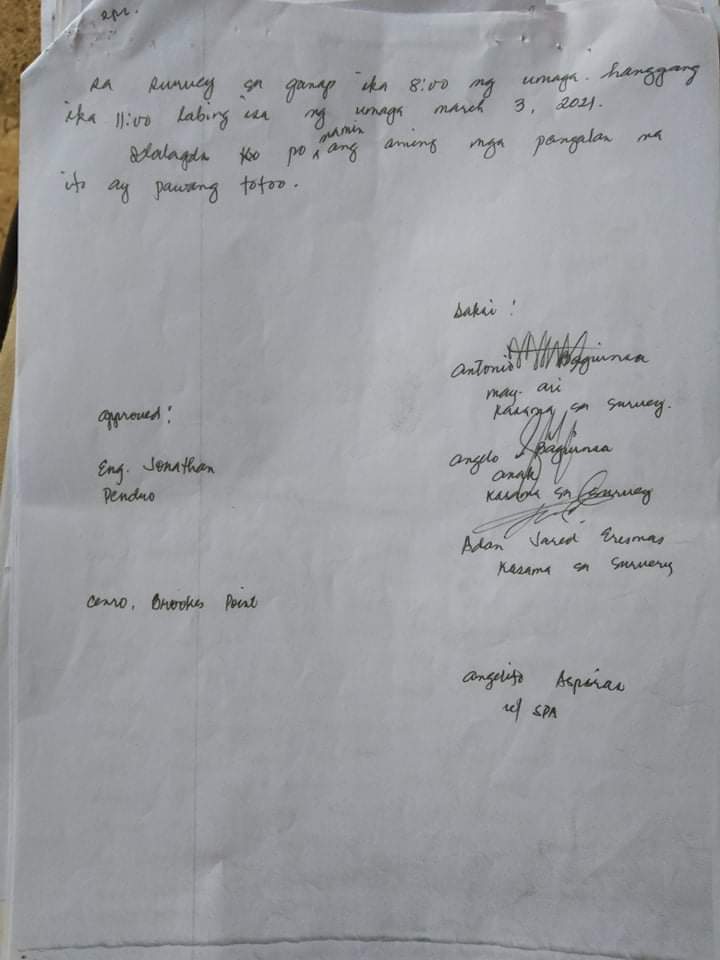 sa survey sa ganap ika 8:00 ng umaga. hanggang
ika 11:00 labing isa ng umaga march 3, 2021.
po namin ang aming mga pangalan na
ito ay pawang totoo.
Saksi :
Antonio
may. ari
kasama sa survey.
approved :
Angelo
anak
Eng. Jonathan
kasama sa survey
Adan Jared Eresmas
kasama sa survery
cenro, Brookes Point
angelito
w/ SPA